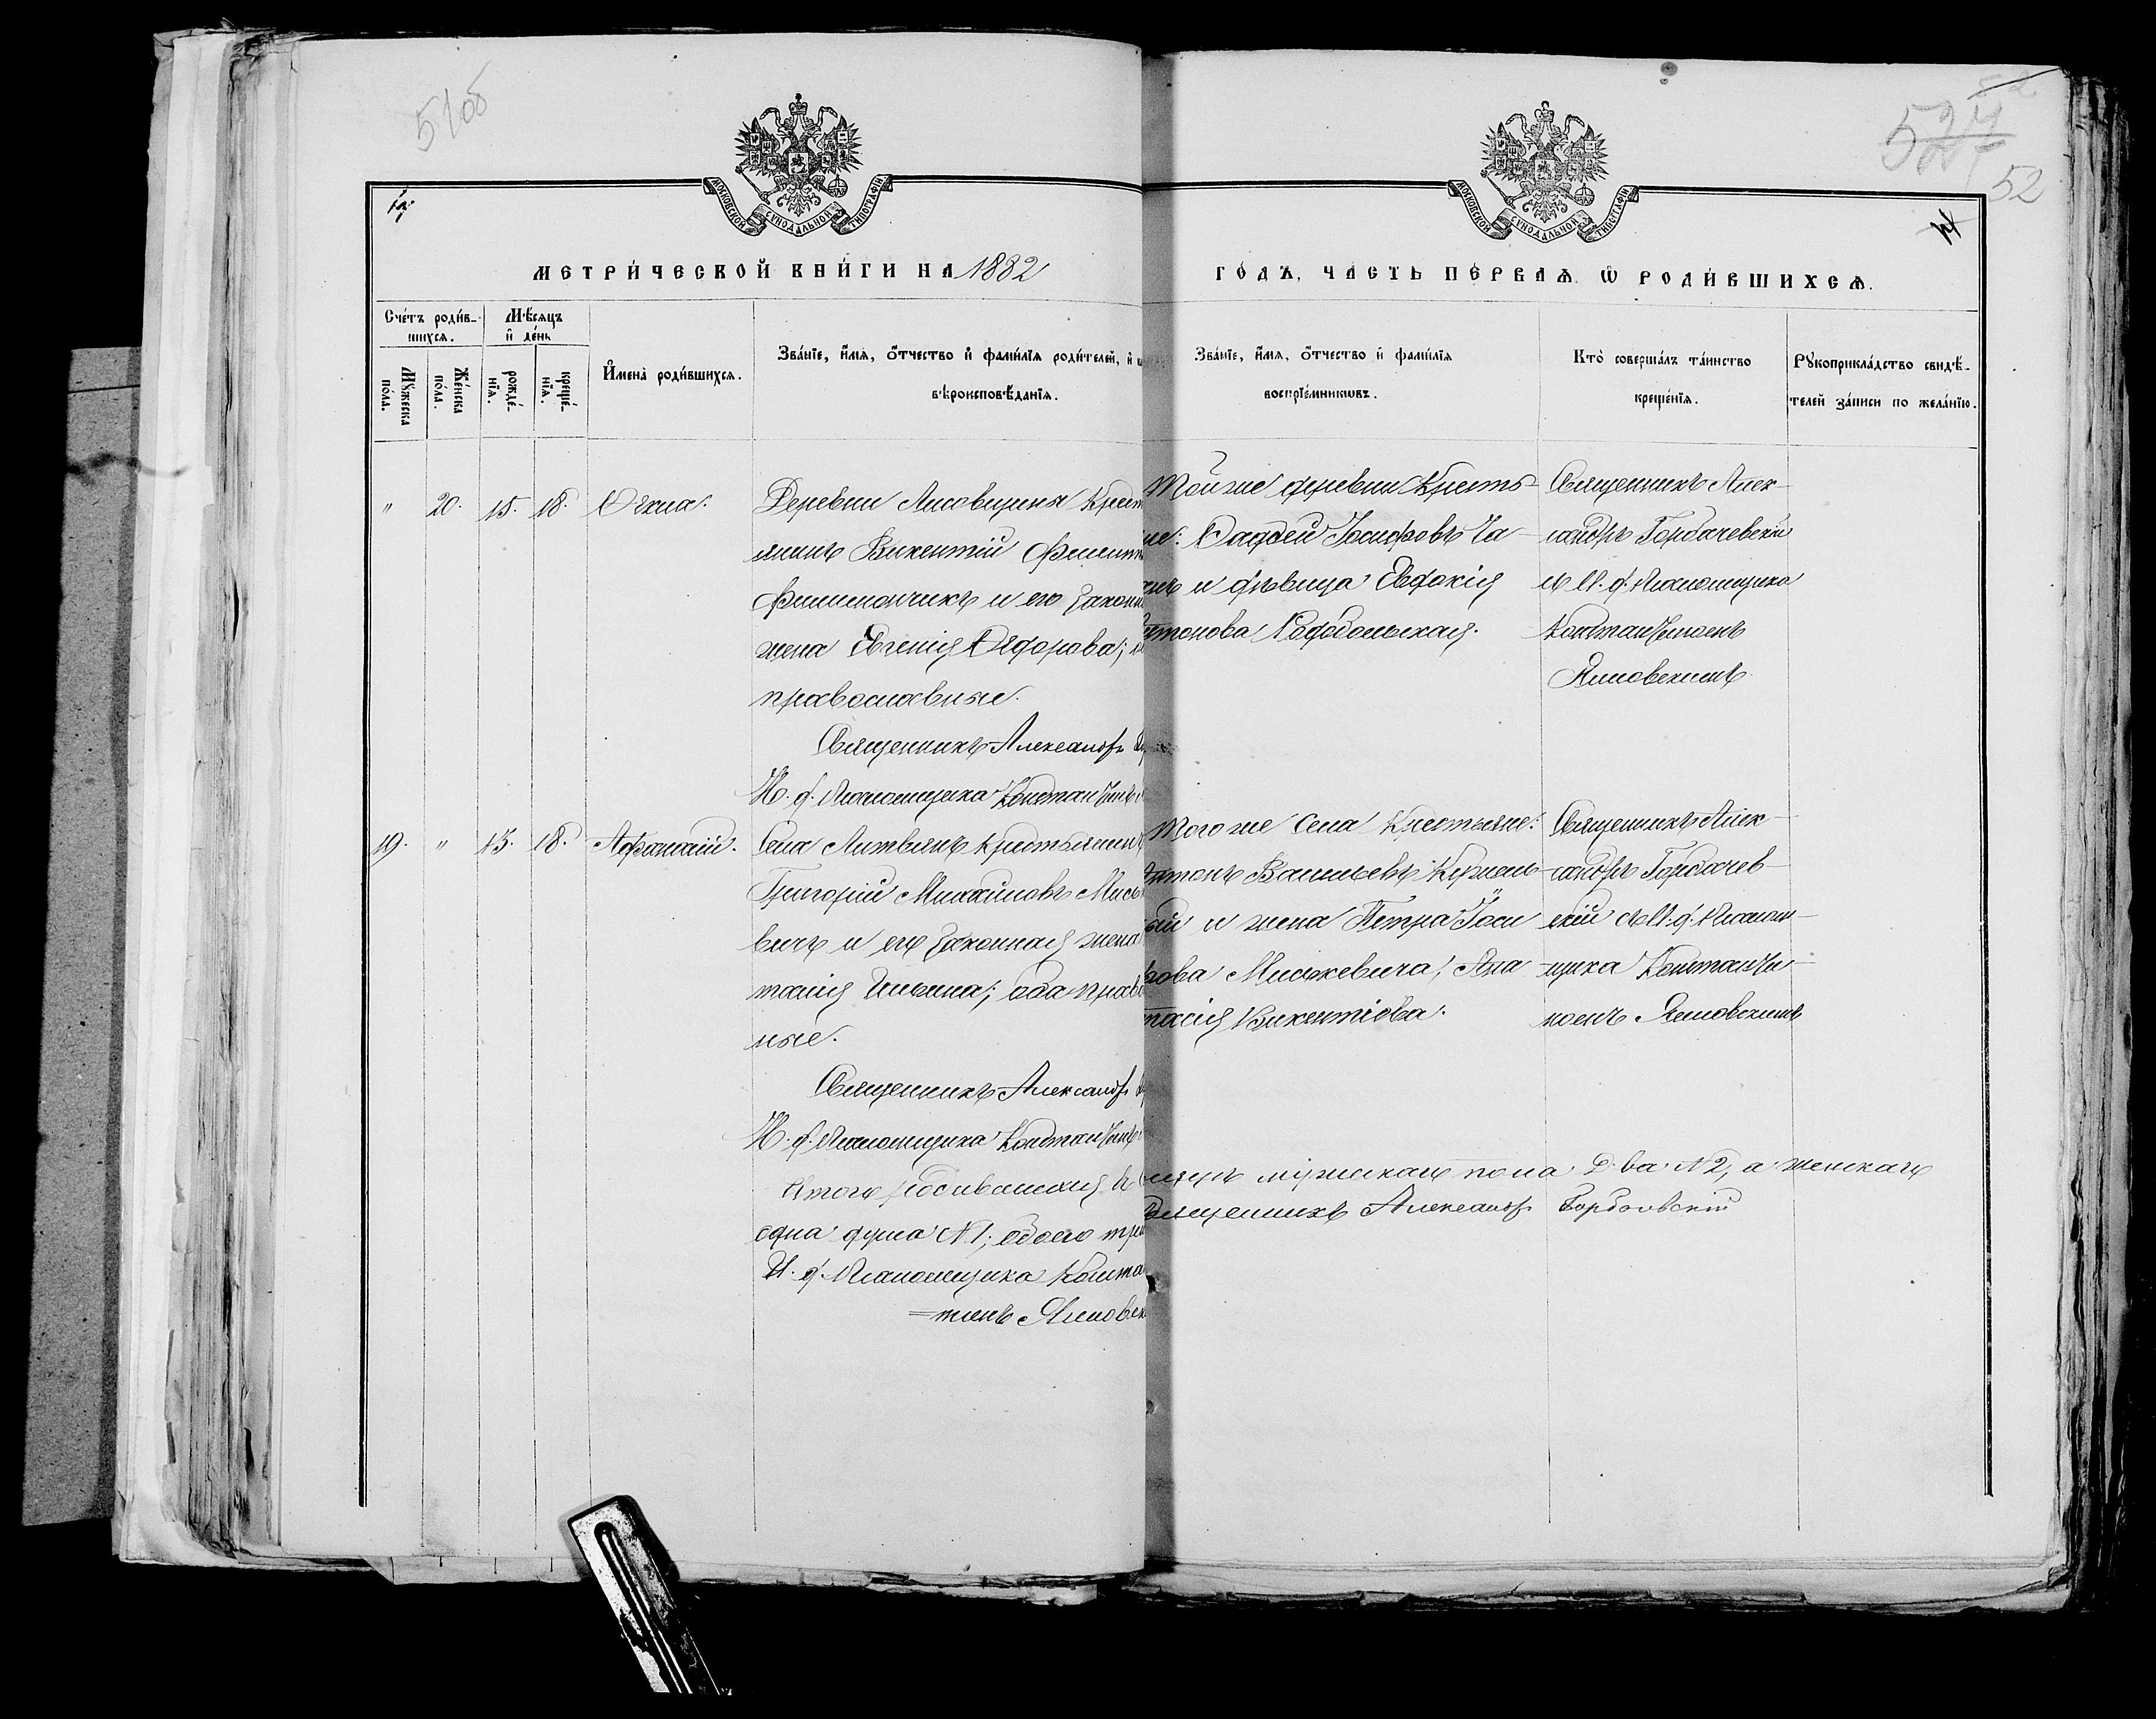 51об
52
14
МОСКОВСКОЙ СѴНОДАЛЬНОЙ ТИПОГРАФІИ
МОСКОВСКОЙ СѴНОДАЛЬНОЙ ТИПОГРАФІИ
МЕТРИ́ЧЕСКОЙ КНИ́ГИ НА 1882
ГО́ДЪ, ЧА́СТЬ ПЕ́РВАѦ. Ѿ РОДИ́ВШИХСѦ.
Сче́тъ роди́в-
шихсѧ.
Мѣ́сѧцъ
и҆ де́нь
Мꙋ́жеска
по́ла.
Же́нска
по́ла.
рожде́-
нїѧ.
креще́-
нїѧ.
И҆мена̀ роди́вшихсѧ.
Зва́нїе, и҆́мѧ, о҆́тчество и҆ фами́лїѧ роди́телей, и҆
вѣроисповѣ́данїѧ.
Зва́нїе, и҆́мѧ, о҆́тчество и҆ фами́лїѧ
воспрїе́мникѡвъ.
Кто̀ соверша́лъ та́инство
креще́нїѧ.
Рꙋкоприкла́дство свидѣ́-
телей за́писи по жела́нїю.
" 20. 15. 18. Ѳекла.
Деревни Лисовщина Крест
янинъ Викентій
и его законн
жена Евгенія Ѳедорова;
православные.
Священникъ Александръ
И. д. Псаломщика Константинъ
Той же деревни Кресть-
не: Ѳадей Іосифовъ Ча-
и дѣвица Евдокія
нтонова
Священникъ Алек-
сандръ Горбачевскій
съ И. д. Псаломщика
Константиномъ
19. " 15. 18. Афанасій.
Села Литвянъ крестьянинъ
Григорій Михайловъ Мись
вичъ и его законная жена
тасія Ильина; оба право
ные.
Священникъ Александръ
И. д. Псаломщика Константинъ
Того же села Крестьяне:
Антонъ Васильевъ
и жена Петра Іоси
фова Миськевича, Ана
тасія Викентіева.
Священникъ Алек-
сандръ Горбачев-
скій съ И. д. Псалом-
щика Константи-
номъ
Итого родившихся въ
мужскаго пола два №2, а женскаго
одна душа №1; обоего
Священникъ Александръ
И. д. Псаломщика Конста